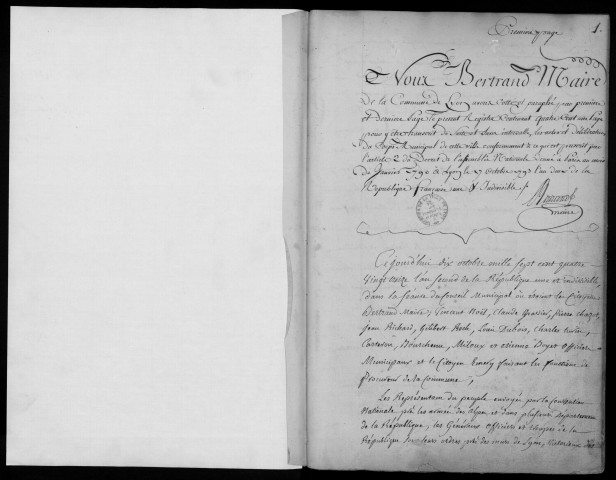 Premiere page 1.
Nous Bertrand Maire
De la Commune de Lyon avons cotté et paraphé pour premiere
et Derniere page le présent Registre Contenant quatre cent une page
pour y être transcrit de suite et sans intervalle, les actes et délibérations
du Corps Municipal de cette ville conformément à ce qui est prescrit par
l'article 2 du Décret de l'assemblée Nationale du mois
de Janvier 1790 à Lyon le 17 octobre 1793 l'an deux de la
Republique française une & Indivisible
Bertrand
maire
Cejourd'hui dix octobre mille sept cent quatre
vingt treize l'an second de la République une et indivisible,
dans la séance du Conseil Municipal où étoient les Citoyens
Bertrand Maire, Vincent Noël, Claude Gravier, pierre chazot,
jean Richard, Gilibert Roch, Louis Dubois, charles turin,
Carteron, Bourchenu, Milou et etienne Boyet officiers
Municipaux et le Citoyen faisant les fonctions de
Procureur de la Commune,
Les Représentans du peuple envoyés par la Convention
Nationale, près les armées des alpes et dans plusieurs départemens
de la République, les Généraux officiers et troupes de la
République sous leurs ordres près des murs de Lyon,